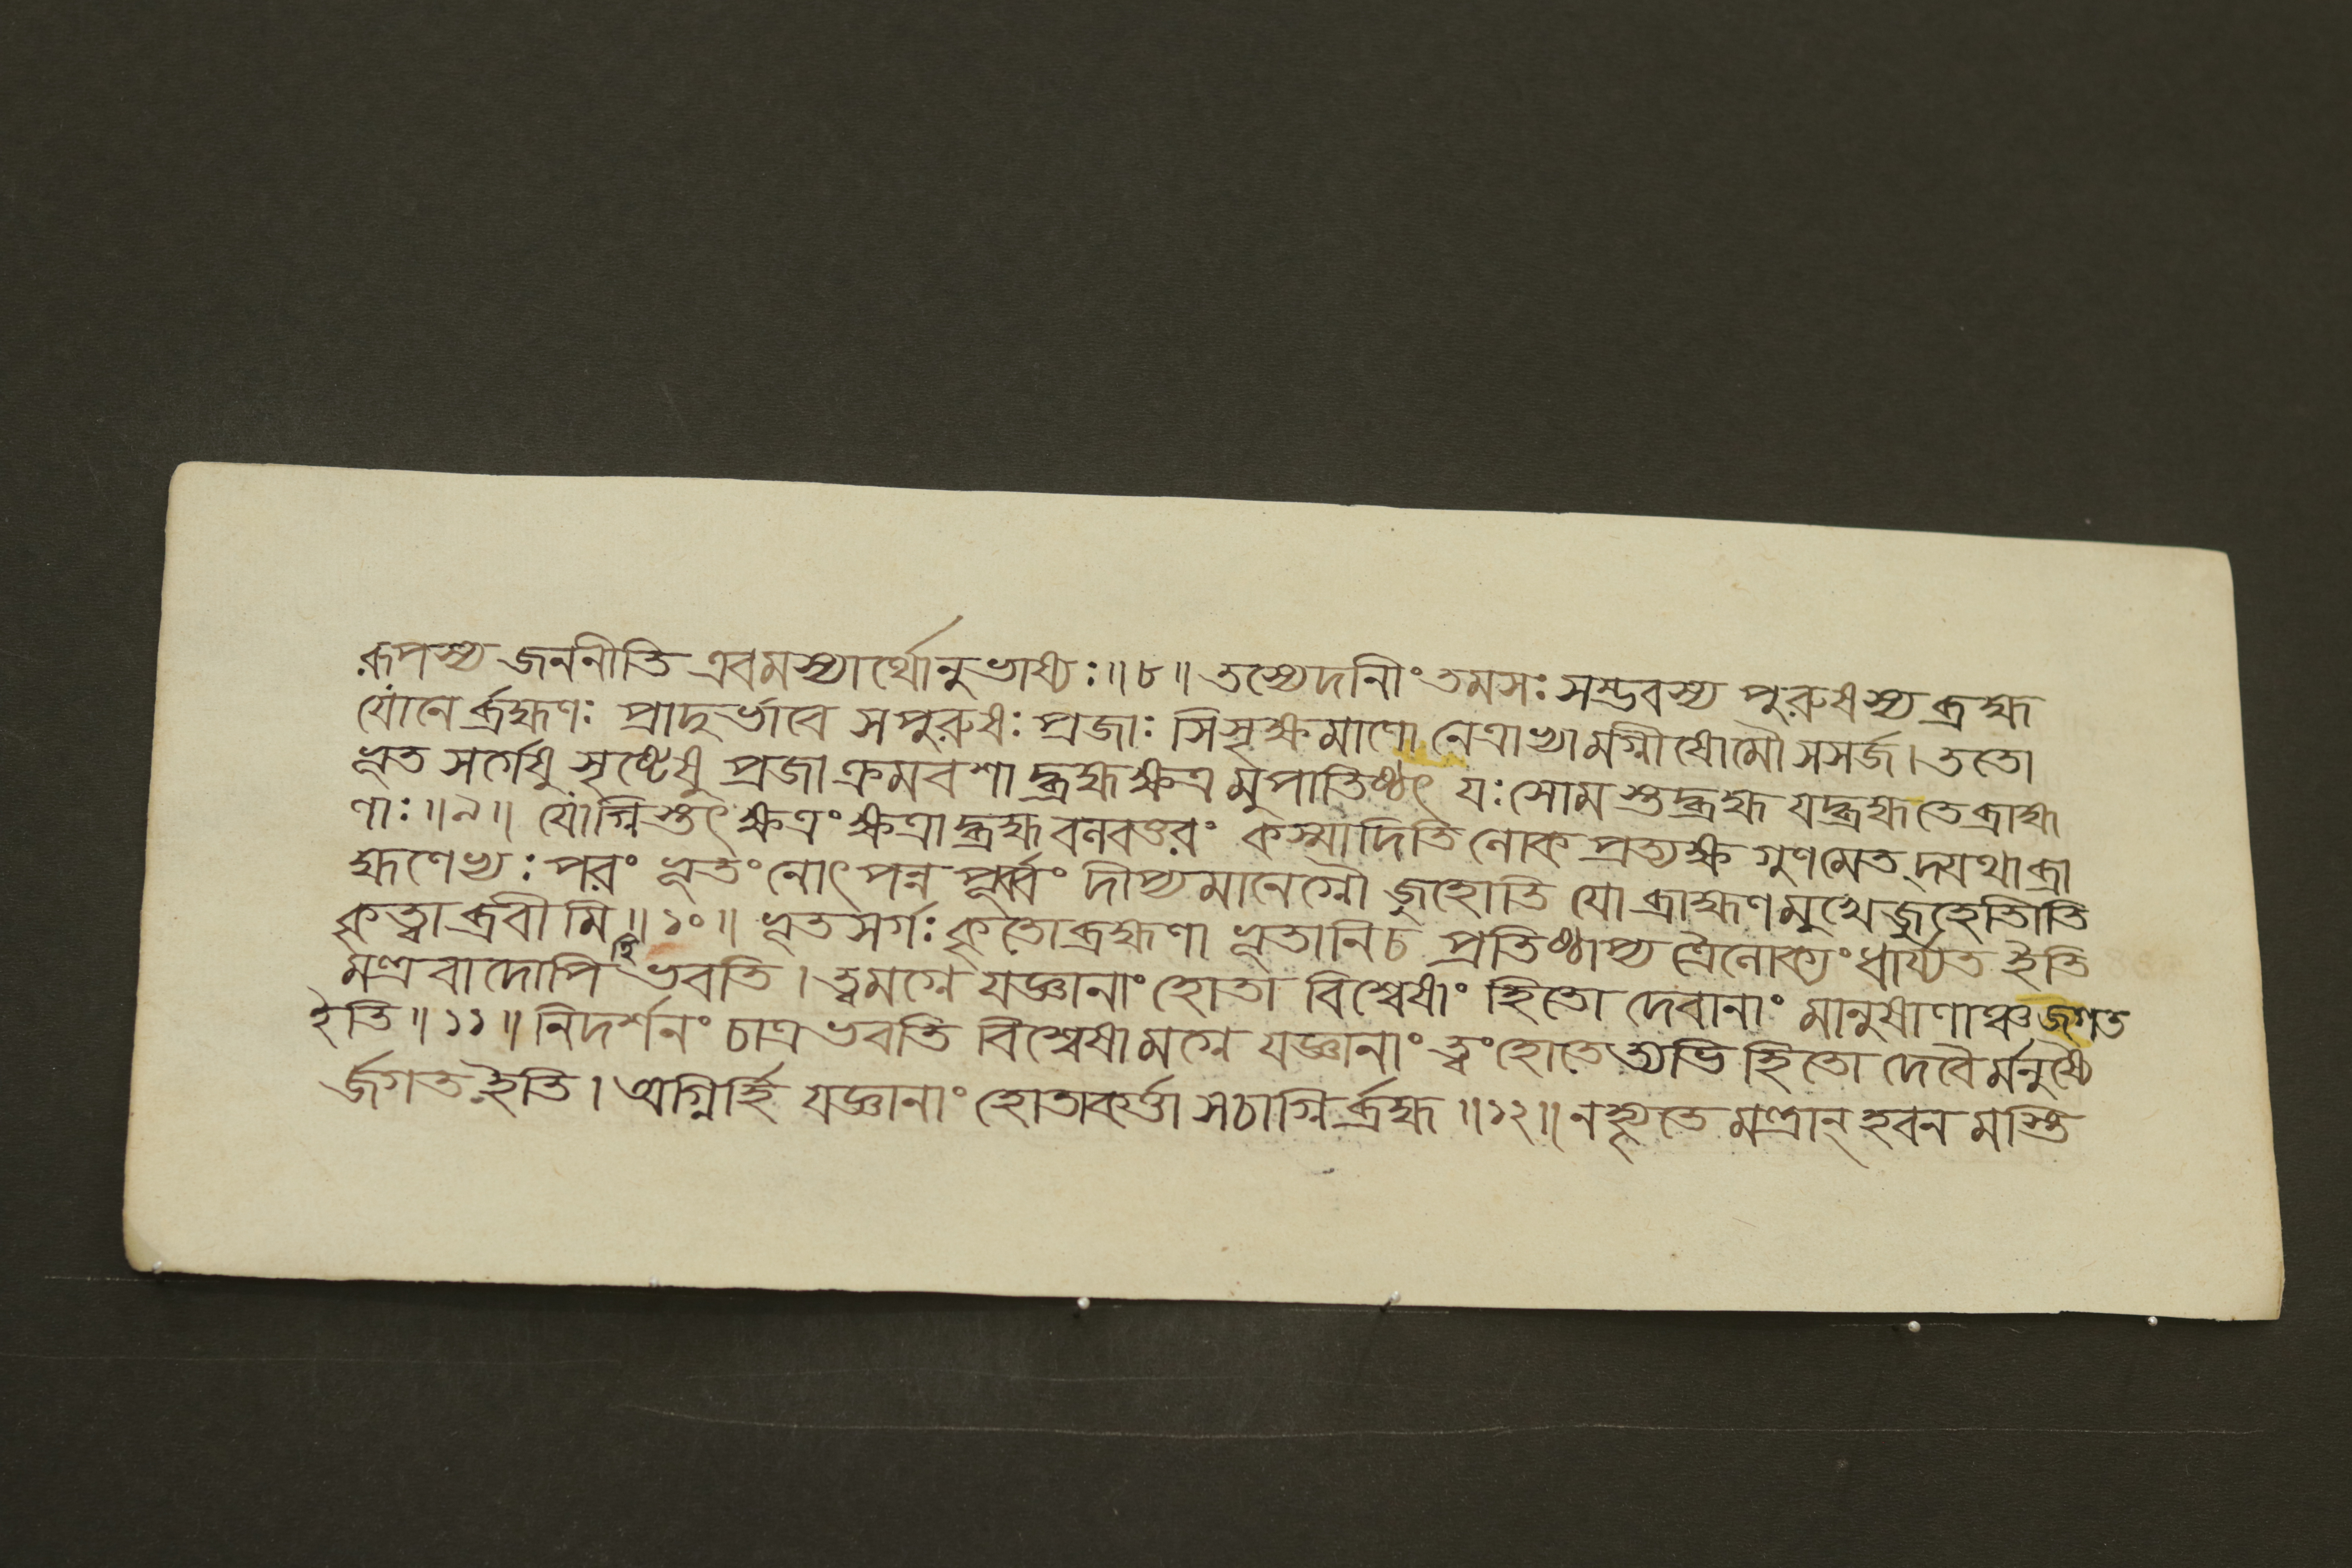 রূপস্য জননীতি এবমস্যার্থোনুভাষ্যঃ॥৮॥ তস্যেদনীং তমসঃ সম্ভবস্য পুরুষস্য ব্রহ্ম
যোনের্ব্রহ্মণঃ প্রাদুর্ভাবে সপুরুষঃ প্রজাঃ সিসৃক্ষমাণো নেত্রাভ্যামগ্নীষোমৌ সসর্জ। ততো
ভূত সর্গেষু সৃষ্টেষু প্রজা ক্রমবশাদ্ব্রহ্মক্ষত্রমুপাতিষ্ঠৎ যঃ সোমস্তদ্ব্রহ্ম যদ্ব্রহ্মতেব্রাহ্ম
ণাঃ॥৯॥ যোগ্নিস্তৎক্ষত্রং ক্ষত্রাদ্ব্রহ্মবলবত্তরং কস্মাদিতি লোকপ্রত্যক্ষ গুণমেতদ্যথাব্রা
হ্মণেভ্যঃ পরং ভূতং নোৎপন্ন পূর্ব্বং দীপ্যমানেগ্নৌ জুহোতি যোব্রাহ্মণমুখেজুহোতীতি
কৃত্বাব্রবীমি॥১০॥ ভূতসর্গঃ কৃতোব্রহ্মণা ভূতানিচ প্রতিষ্ঠাপ্য ত্রৈলোক্যং ধার্য্যত ইতি
মন্ত্রবাদোপি হি ভবতি। ত্বমগ্নে যজ্ঞানাং হোতা বিশ্বেষাং হিতো দেবানাং মানুষাণাঞ্চজগত
ইতি॥১১॥ নিদর্শনং চাত্রভবতি বিশ্বেষামগ্নে যজ্ঞানাং ত্বং হোতেত্যভি হিতো দেবৈর্মনুষ্যৈ
র্জগত ইতি। অগ্নির্হি যজ্ঞানাং হোতাকর্ত্তা সচাগ্নির্ব্রহ্ম॥১২॥ নহ্যৃতে মন্ত্রান্ হবন মস্তি